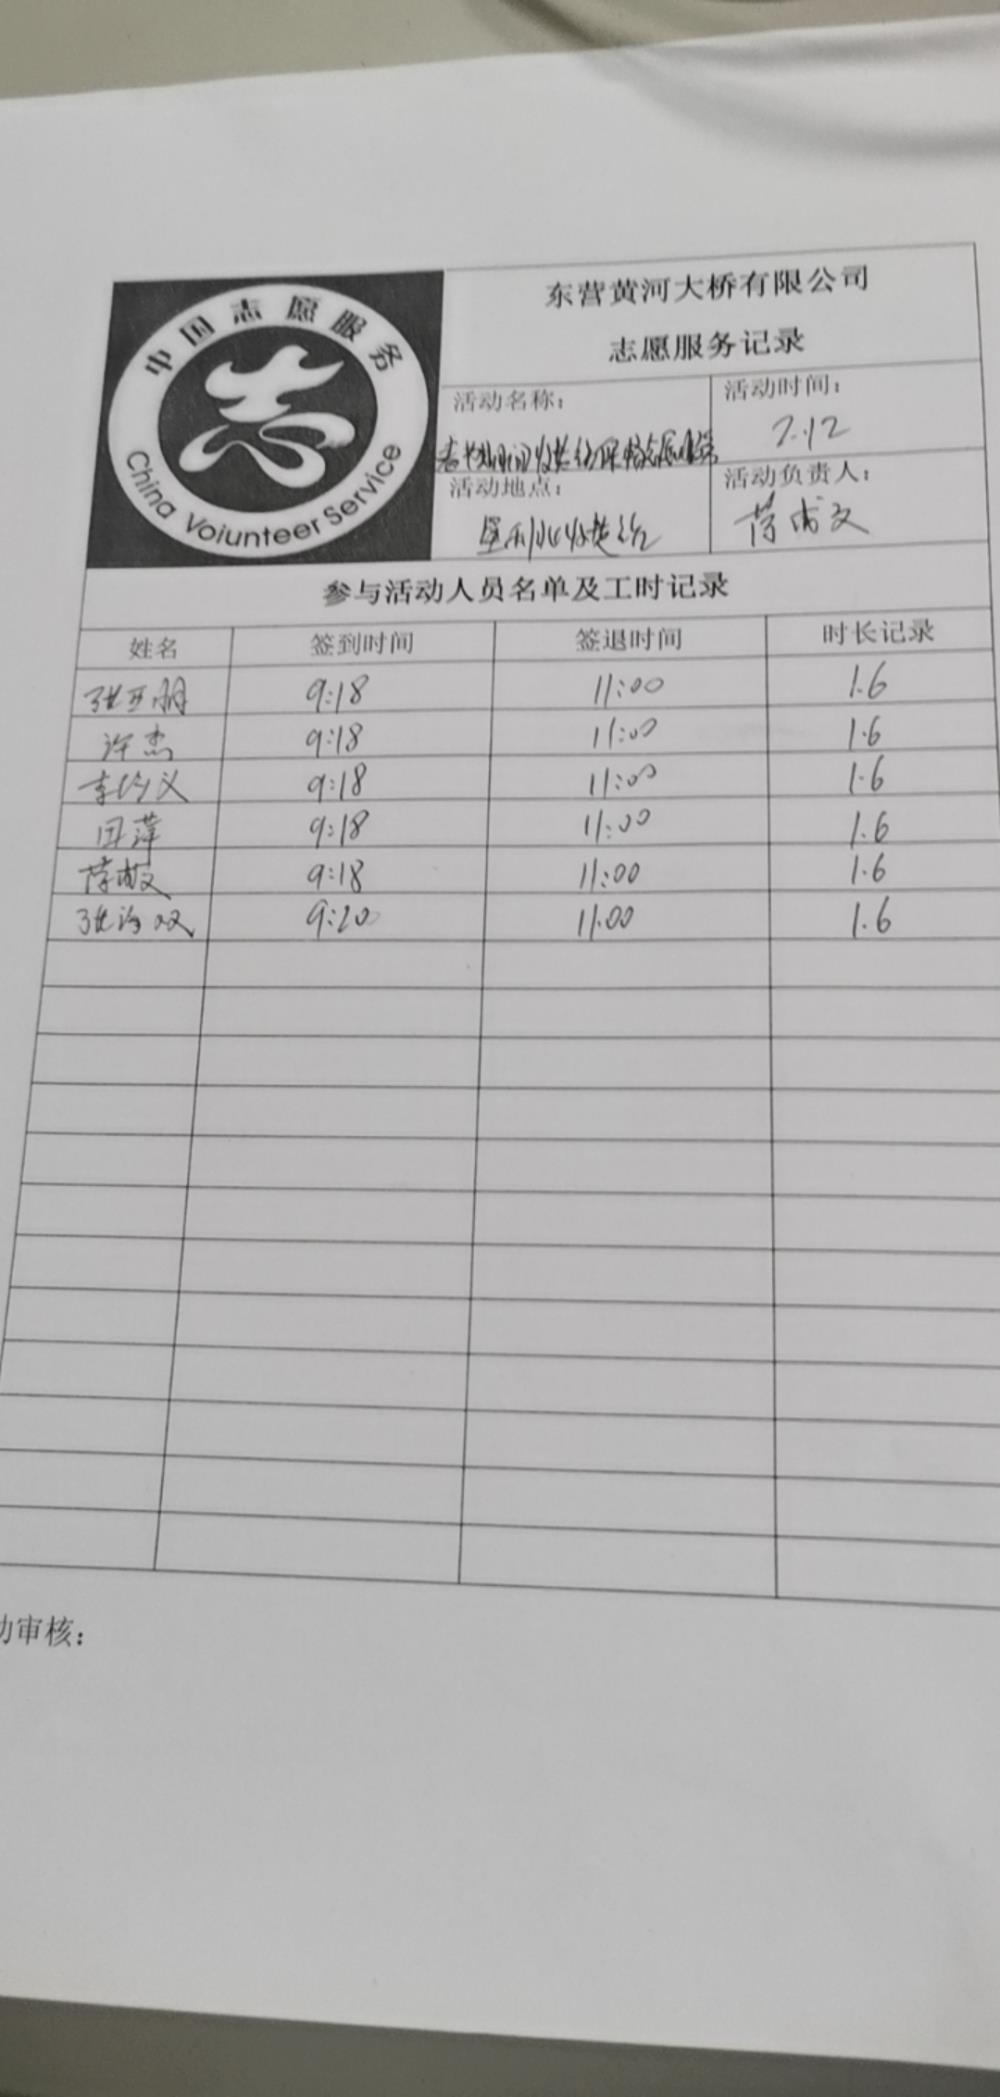 中国志愿服务
China Voiunteer Service
东营黄河大桥有限公司
志愿服务记录
活动名称：
春节期间收费站保畅志愿服务
活动时间：
2.12
活动地点：
垦利北收费站
活动负责人：
参与活动人员名单及工时记录
姓名 签到时间 签退时间 时长记录
张亚朋 9:18 11:00 1.6
许杰 9:18 11:00 1.6
9:18 11:00 1.6
田萍 9:18 11:00 1.6
9:18 11:00 1.6
9:20 11:00 1.6
动审核：